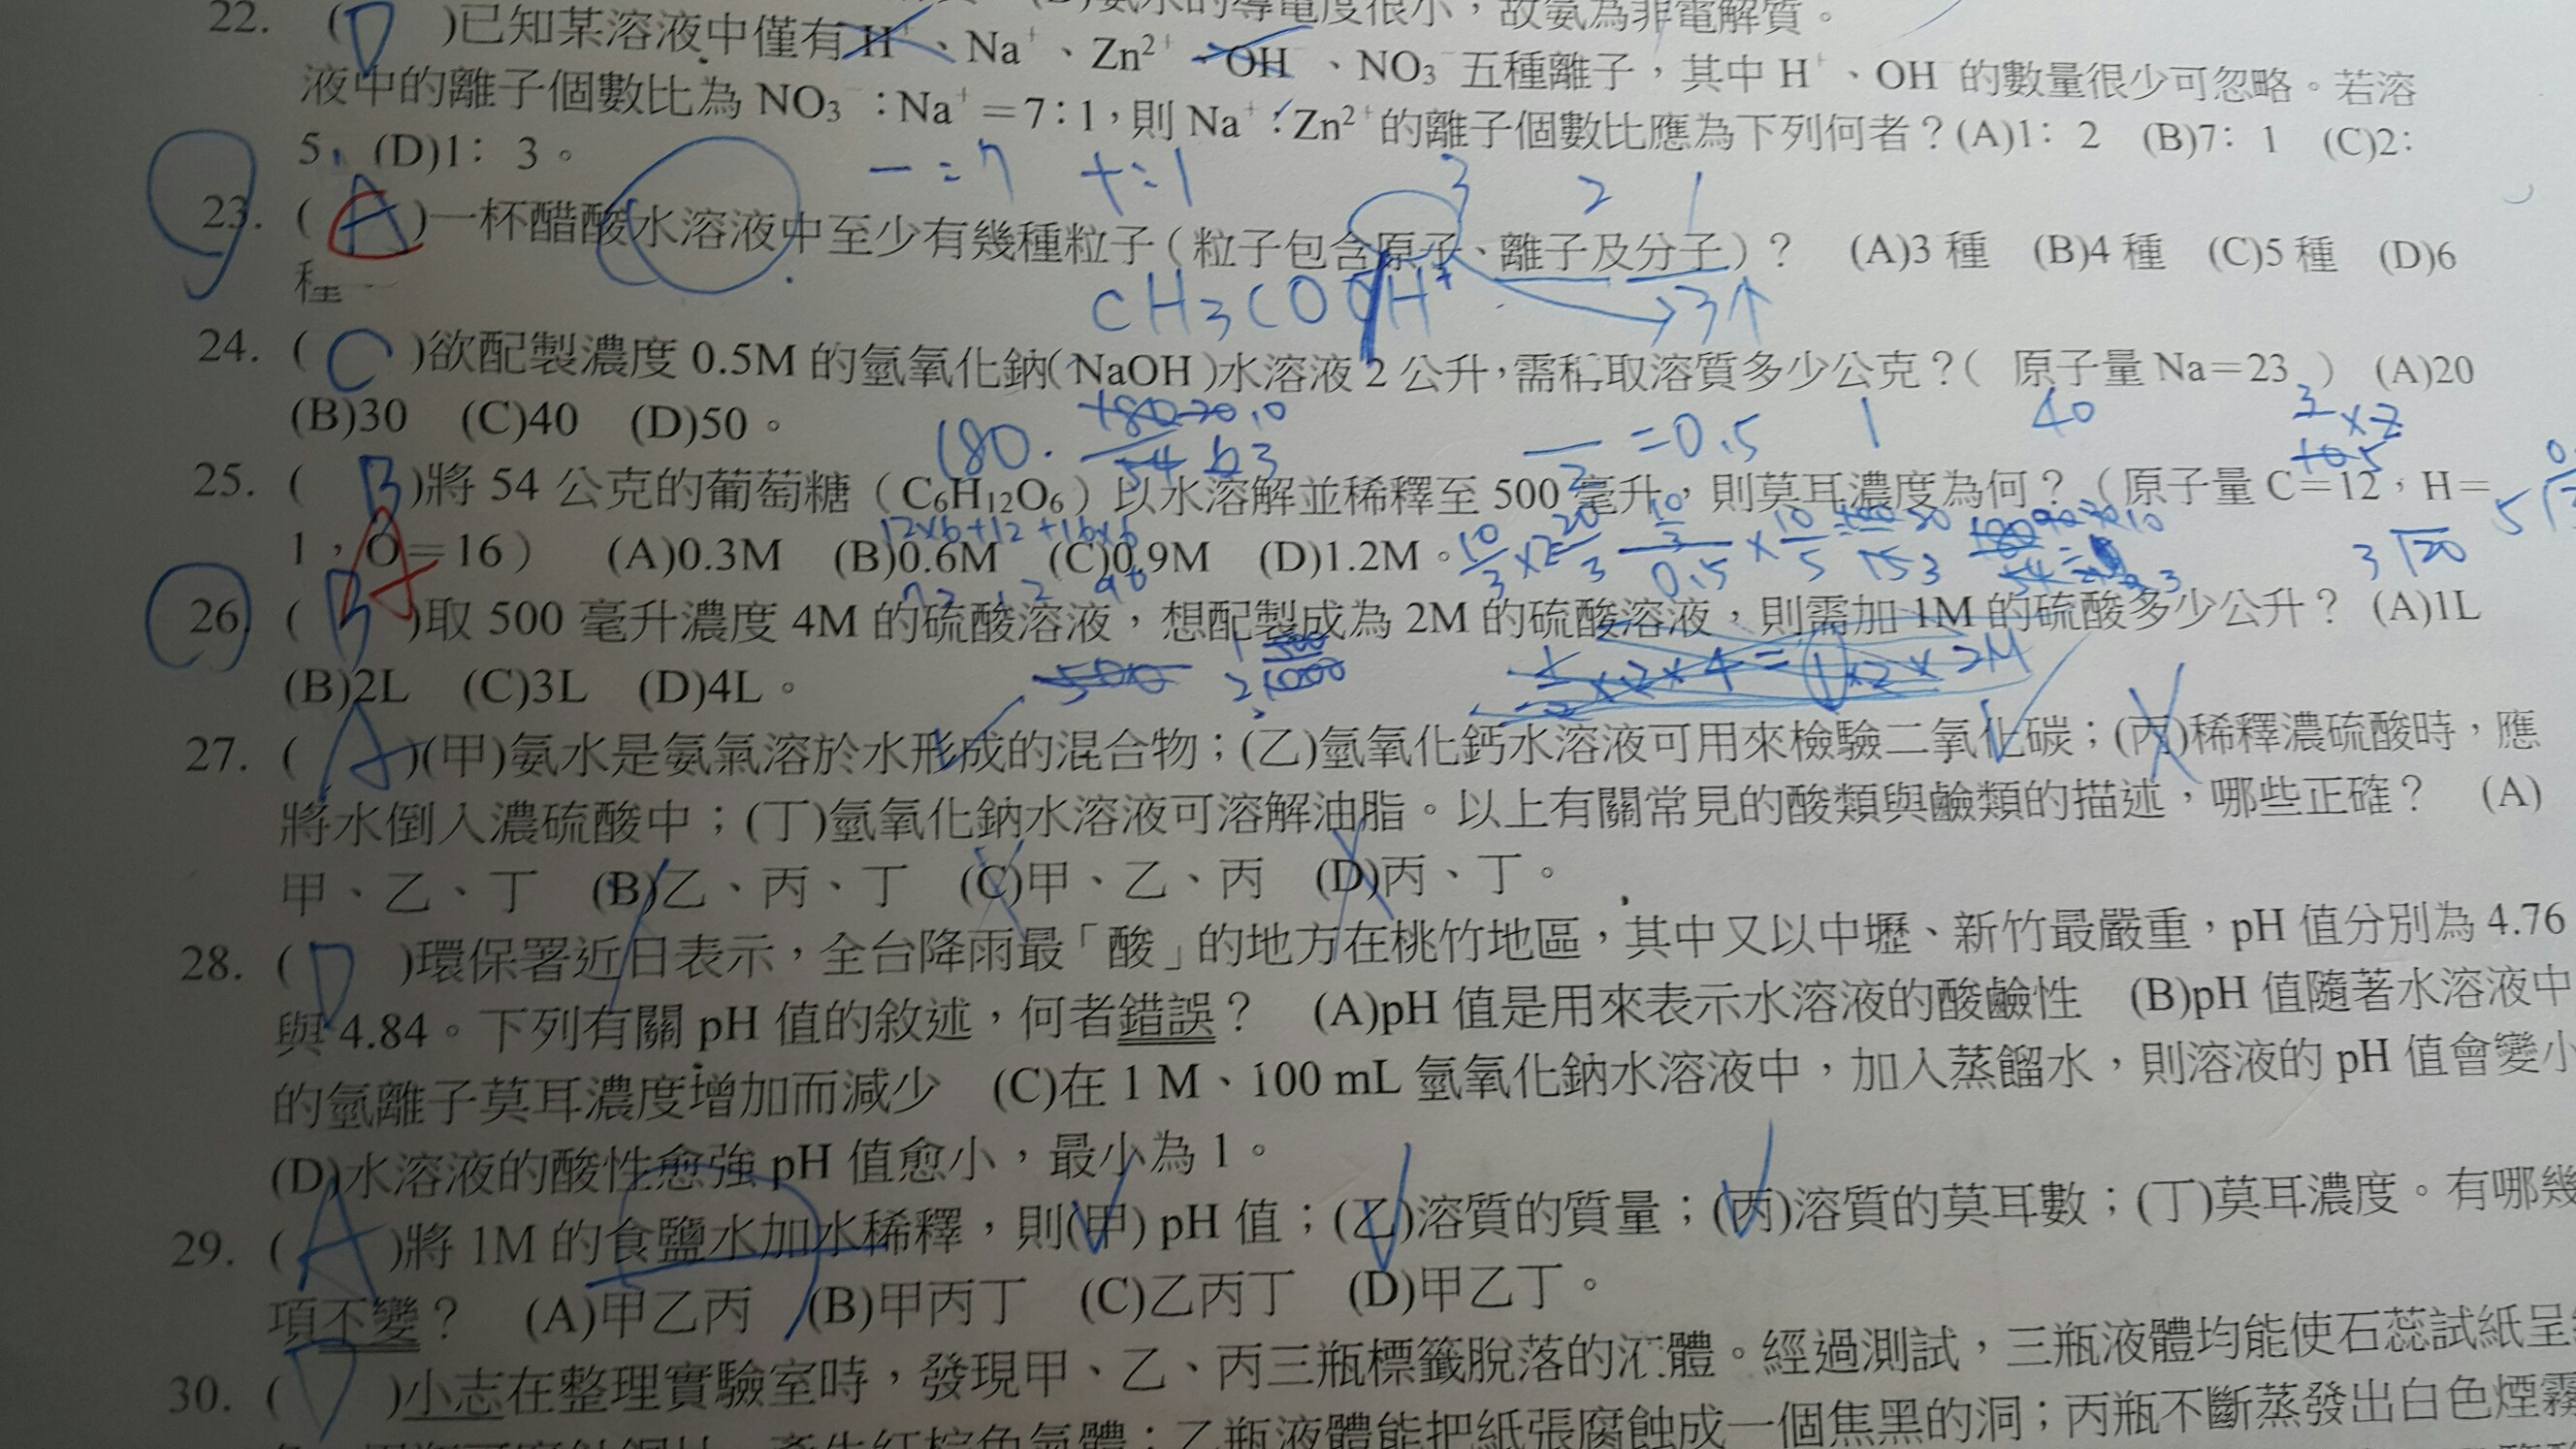 22. ( D )已知某溶液中僅有 H⁺、Na⁺、Zn²⁺、OH⁻、NO₃⁻五種離子，其中 H⁺、OH⁻的數量很少可忽略。若溶
液中的離子個數比為 NO₃⁻：Na⁺＝7：1，則 Na⁺：Zn²⁺的離子個數比應為下列何者？(A)1：2 (B)7：1 (C)2：
5 (D)1：3。
－＝7 ＋＝1 3 2 1
23. ( A )一杯醋酸水溶液中至少有幾種粒子（粒子包含原子、離子及分子）？ (A)3 種 (B)4 種 (C)5 種 (D)6
種
CH3COOH⁺ →3↑
24. ( C )欲配製濃度 0.5M 的氫氧化鈉(NaOH)水溶液 2 公升，需秤取溶質多少公克？( 原子量 Na＝23 ) (A)20
(B)30 (C)40 (D)50。
180. ＝0.5 1 40
25. ( B )將 54 公克的葡萄糖（C₆H₁₂O₆）以水溶解並稀釋至 500 毫升，則莫耳濃度為何？（原子量 C＝12，H＝
12×6+12+16×6
1，O＝16） (A)0.3M (B)0.6M (C)0.9M (D)1.2M。
26. ( B A )取 500 毫升濃度 4M 的硫酸溶液，想配製成為 2M 的硫酸溶液，則需加 1M 的硫酸多少公升？ (A)1L
(B)2L (C)3L (D)4L。
27. ( A )(甲)氨水是氨氣溶於水形成的混合物；(乙)氫氧化鈣水溶液可用來檢驗二氧化碳；(丙)稀釋濃硫酸時，應
將水倒入濃硫酸中；(丁)氫氧化鈉水溶液可溶解油脂。以上有關常見的酸類與鹼類的描述，哪些正確？ (A)
甲、乙、丁 (B)乙、丙、丁 (C)甲、乙、丙 (D)丙、丁。
28. ( D )環保署近日表示，全台降雨最「酸」的地方在桃竹地區，其中又以中壢、新竹最嚴重，pH 值分別為 4.76
與 4.84。下列有關 pH 值的敘述，何者錯誤？ (A)pH 值是用來表示水溶液的酸鹼性 (B)pH 值隨著水溶液中
的氫離子莫耳濃度增加而減少 (C)在 1 M、100 mL 氫氧化鈉水溶液中，加入蒸餾水，則溶液的 pH 值會變小
(D)水溶液的酸性愈強 pH 值愈小，最小為 1。
29. ( A )將 1M 的食鹽水加水稀釋，則(甲) pH 值；(乙)溶質的質量；(丙)溶質的莫耳數；(丁)莫耳濃度。有哪幾
項不變？ (A)甲乙丙 (B)甲丙丁 (C)乙丙丁 (D)甲乙丁。
30. ( D )小志在整理實驗室時，發現甲、乙、丙三瓶標籤脫落的液體。經過測試，三瓶液體均能使石蕊試紙呈
產生紅棕色氣體；乙瓶液體能把紙張腐蝕成一個焦黑的洞；丙瓶不斷蒸發出白色煙霧